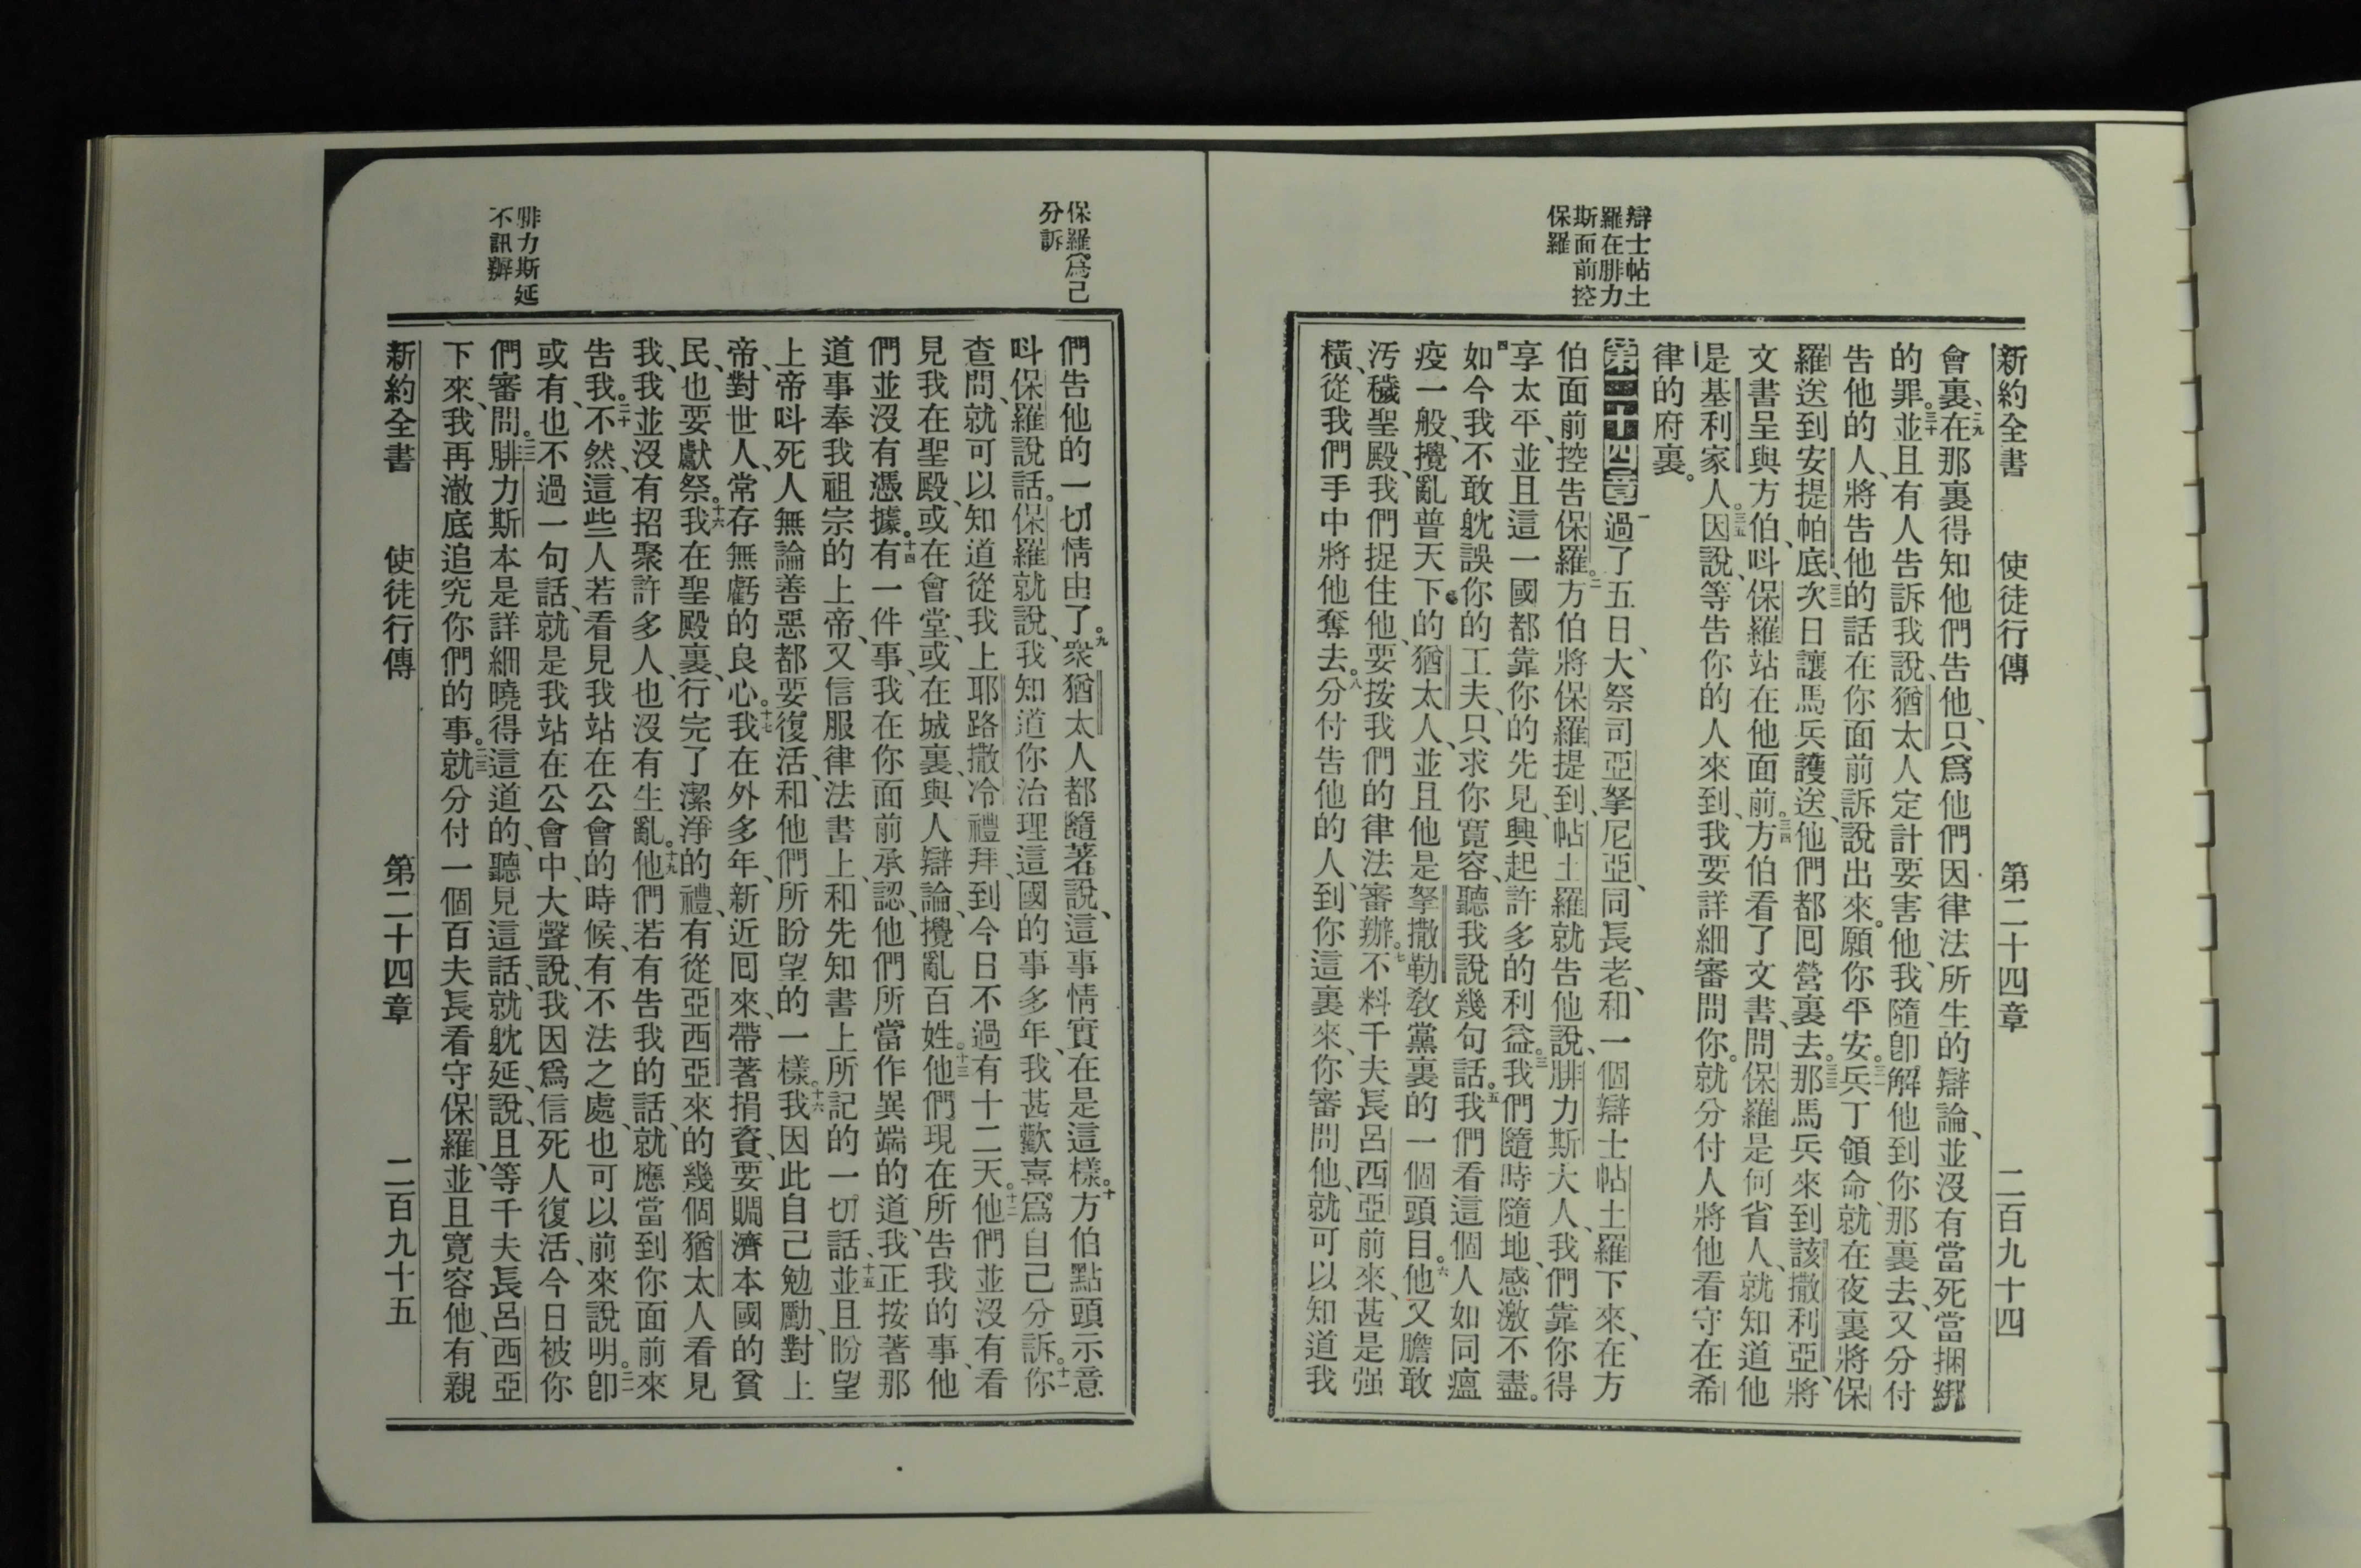 新約全書　使徒行傳　第二十四章　二百九十四
辯士帖土
羅在腓力
斯面前控
保羅
會裏、二九在那裏得知他們告他、只爲他們因律法所生的辯論、並沒有當死當捆綁
的罪。三十並且有人告訴我說、猶太人定計要害他、我隨卽解他到你那裏去、又分付
告他的人、將告他的話在你面前訴說出來。願你平安。三一兵丁領命、就在夜裏將保
羅送到安提帕底、三二次日讓馬兵護送、他們都囘營裏去。三三那馬兵來到該撒利亞、將
文書呈與方伯、呌保羅站在他面前。三四方伯看了文書、問保羅是何省人、就知道他
是基利家人。三五因說、等告你的人來到、我要詳細審問你。就分付人將他看守在希
律的府裏。
第二十四章　一過了五日、大祭司亞拏尼亞、同長老、和一個辯士帖土羅下來、在方
伯面前控告保羅。二方伯將保羅提到、帖土羅就告他說、腓力斯大人、我們靠你得
享太平、並且這一國都靠你的先見、興起許多的利益。三我們隨時隨地、感激不盡。
四如今我不敢躭誤你的工夫、只求你寬容、聽我說幾句話。五我們看這個人如同瘟
疫一般、攪亂普天下的猶太人、並且他是拏撒勒敎黨裏的一個頭目。六他又膽敢
汚穢聖殿、我們捉住他、要按我們的律法審辦。七不料千夫長呂西亞前來、甚是强
橫、從我們手中將他奪去。八分付告他的人、到你這裏來、你審問他、就可以知道我
保羅爲己
分訴
們告他的一切情由了。九衆猶太人都隨著說、這事情實在是這樣。十方伯點頭示意
呌保羅說話。保羅就說、我知道你治理這國的事多年、我甚歡喜爲自己分訴。十一你
查問、就可以知道從我上耶路撒冷禮拜、到今日不過有十二天。十二他們並沒有看
見我在聖殿、或在會堂、或在城裏、與人辯論、攪亂百姓。十三他們現在所告我的事、他
們並沒有憑據。十四有一件事、我在你面前承認、他們所當作異端的道、我正按著那
道事奉我祖宗的上帝、又信服律法書上、和先知書上所記的一切話、十五並且盼望
上帝呌死人無論善惡都要復活、和他們所盼望的一樣。十六我因此自己勉勵、對上
帝、對世人、常存無虧的良心。十七我在外多年、新近囘來、帶著捐資、要賙濟本國的貧
民、也要獻祭。十六我在聖殿裏、行完了潔淨的禮、有從亞西亞來的幾個猶太人看見
我、我並沒有招聚許多人、也沒有生亂。十九他們若有告我的話、就應當到你面前來
告我。二十不然、這些人若看見我站在公會的時候、有不法之處、也可以前來說明。二一卽
或有、也不過一句話、就是我站在公會中、大聲說、我因爲信死人復活、今日被你
們審問。二二腓力斯本是詳細曉得這道的、聽見這話、就躭延、說、且等千夫長呂西亞
下來、我再澈底追究你們的事。二三就分付一個百夫長看守保羅、並且寬容他、有親
腓力斯延
不訊辦
新約全書　使徒行傳　第二十四章　二百九十五